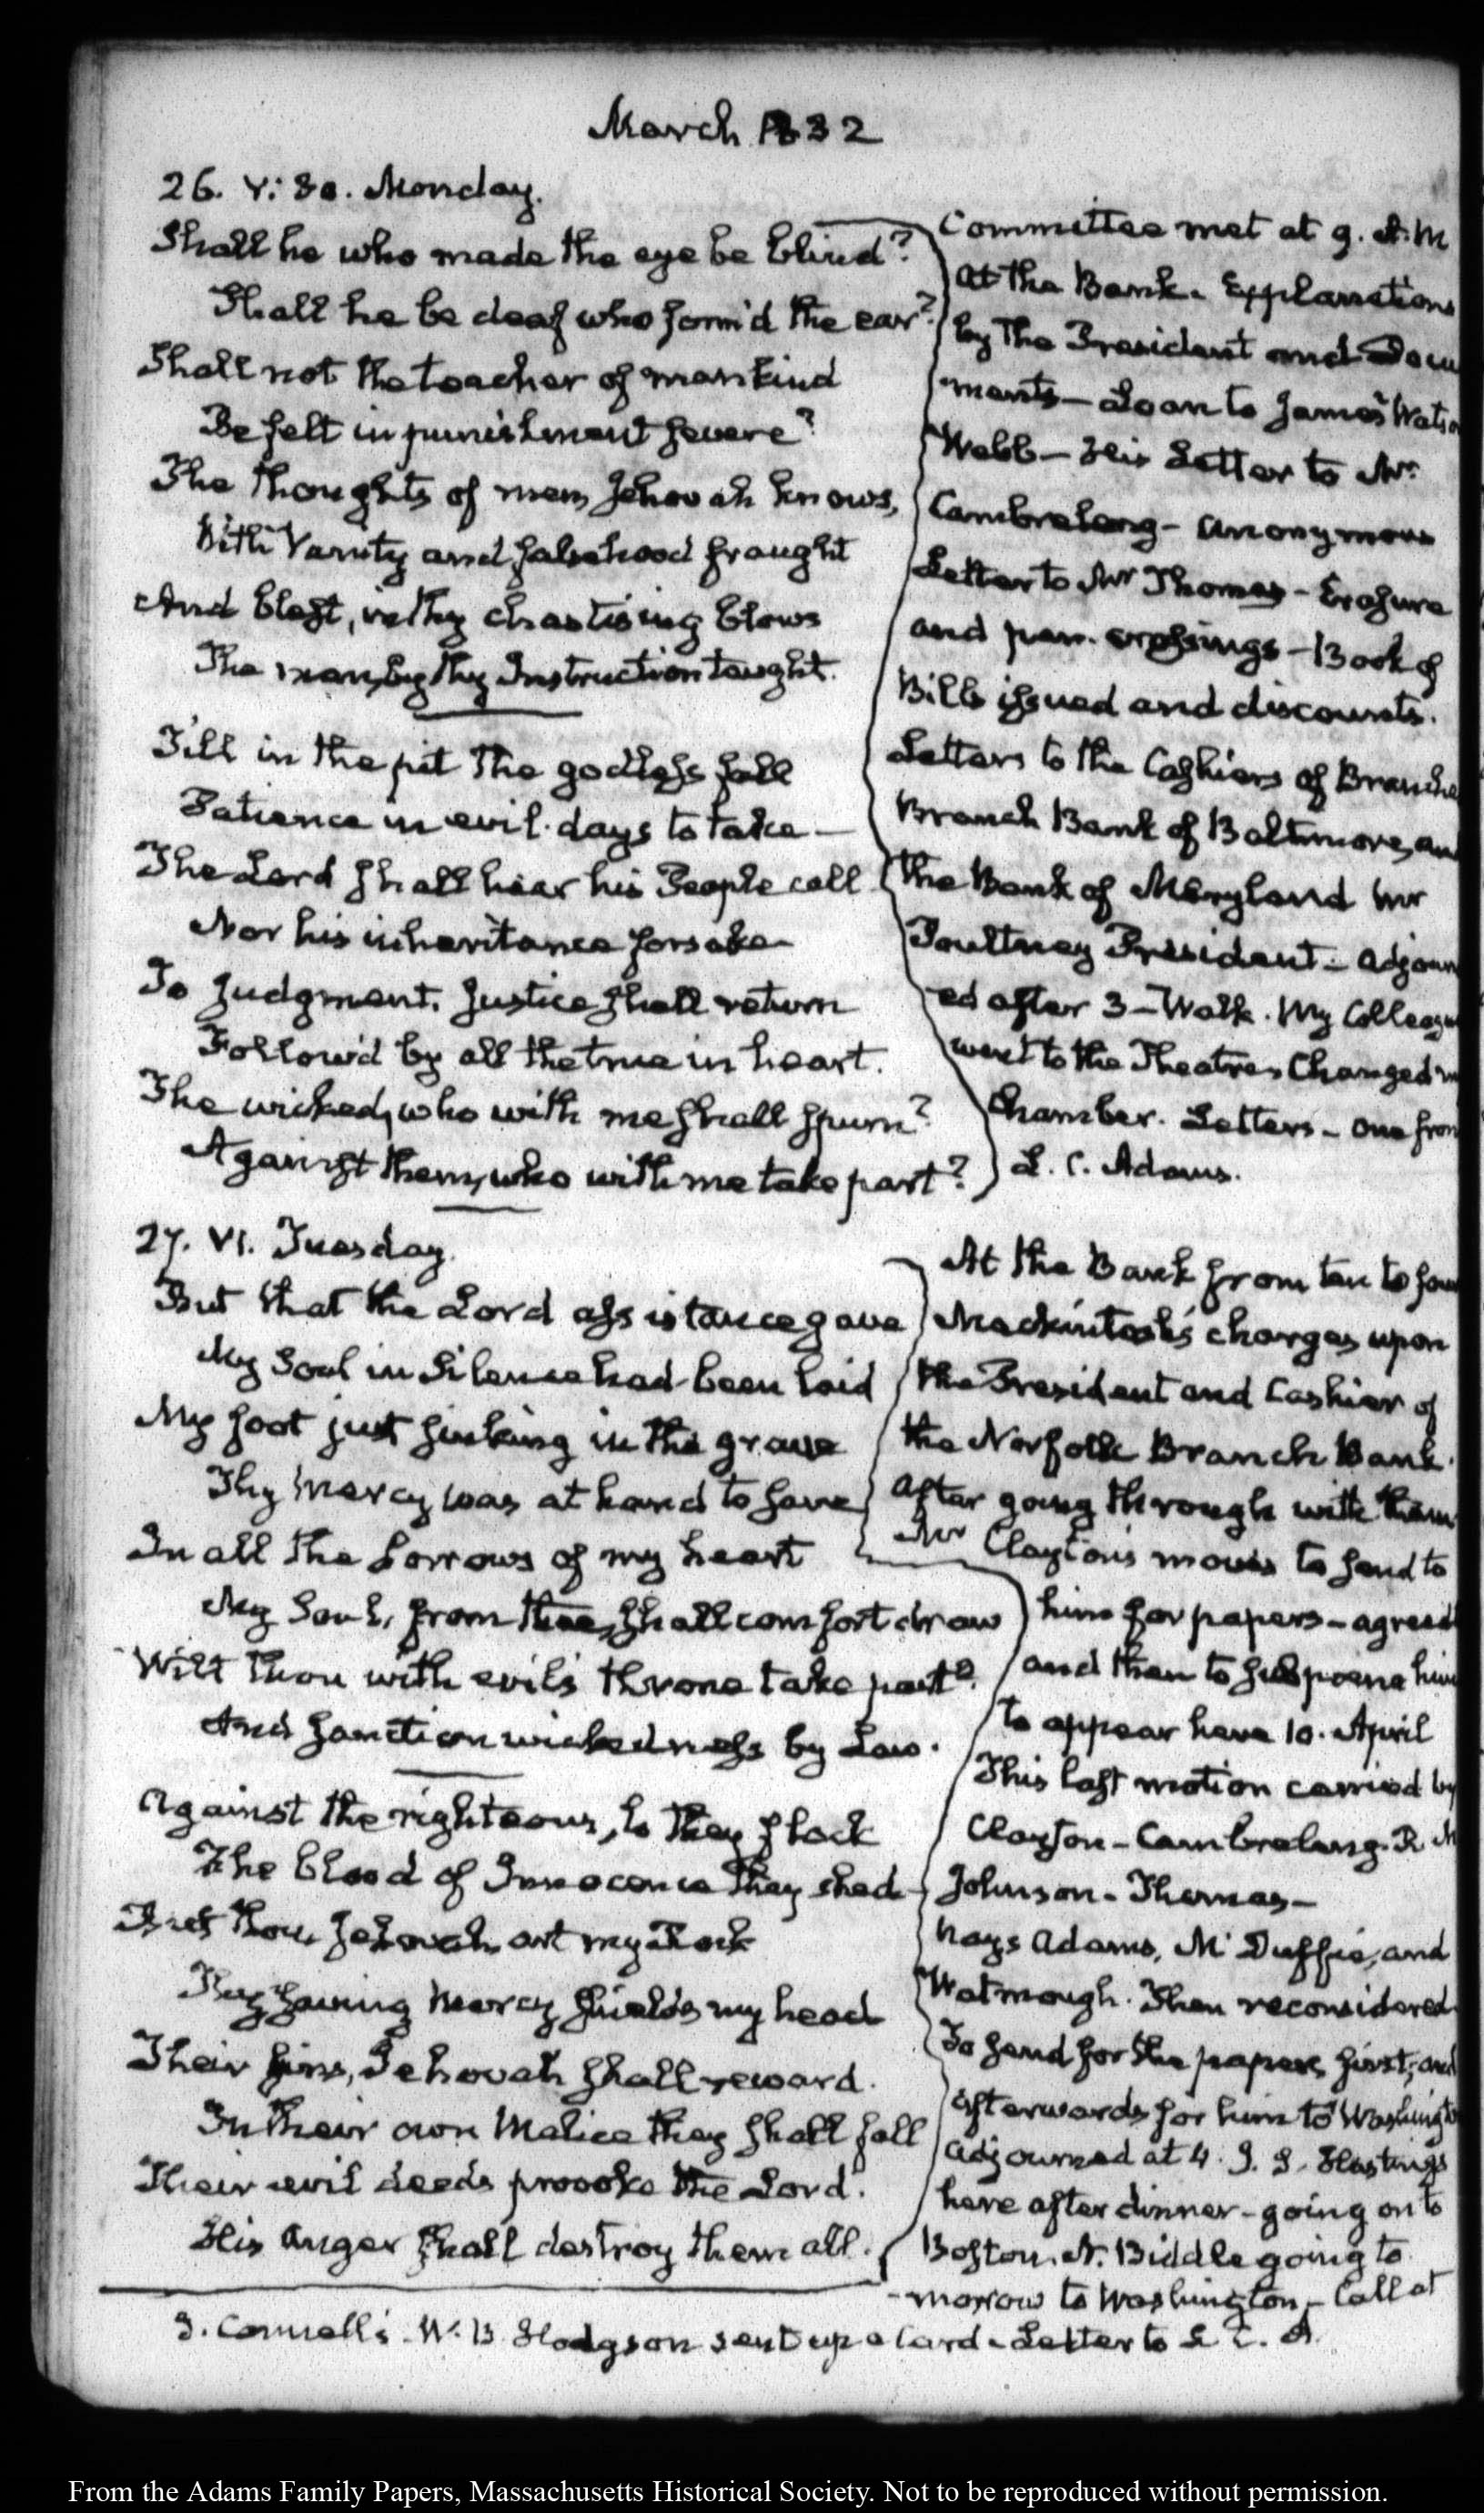 March 1832
26. V: 30. Monday.
Shall he who made the eye be blind?
Shall he be deaf who form'd the ear?
Shall not the teacher of mankind
Be felt in punishment severe?
The thoughts of men, Jehovah knows,
With Vanity and falsehood fraught
And blest, in thy chastising blows
The man, by thy Instruction taught.
Till in the pit the godless fall
Patience in evil days to take—
The Lord shall hear his People call
Nor his inheritance forsake
To Judgment, Justice shall return
Follow'd by all the true in heart.
The wicked, who with me shall spurn?
Against them, who with me take part?
Committee met at 9. A.M
at the Bank. Explanations
by the President and Docu
ments— Loan to James Watso
Webb— His Letter to Mr.
Cambreleng— Anonymous
Letter to Mr Thomas— Erasure
and pen crossings— Book of
Bills issued and discounts.
Letters to the Cashiers of Branche
Branch Bank of Baltimore, an
the Bank of Maryland Mr
Poultney President— Adjourn
ed after 3— Walk. My Colleagu
went to the Theatre. Changed m
Chamber. Letters— One from
L. C. Adams.
27. VI. Tuesday.
But that the Lord assistance gave
My Soul in Silence had been laid
My foot just sinking in the grave
Thy Mercy was at hand to save
In all the Sorrows of my heart
My Soul, from thee, shall comfort draw
Wilt thou with evil's throne take part?
And sanction wickedness by Law.
Against the righteous, lo they flock
The blood of Innocence they shed—
But thou, Jehovah, art my Rock
Thy saving Mercy shields my head
Their sins, Jehovah shall reward.
In their own Malice they shall fall
Their evil deeds provoke the Lord.
His Anger shall destroy them all.
At the Bank from ten to fou
Mackintosh's charges upon
the President and Cashier of
the Norfolk Branch Bank.
After going through with them
Mr Clayton's moves to send to
him for papers— agreed
and then to subpoena him
to appear here 10. April
This last motion carried by
Clayton— Cambreleng. R. M
Johnson— Thomas—
Nays Adams, McDuffie, and
Watmough. Then reconsidered
To send for the papers first, and
afterwards for him to Washingto
Adjourned at 4. J. S. Hastings
here after dinner— going on to
Boston. N. Biddle going to
-morrow to Washington— Call at
J. Connell's. W. B. Hodgson sent up a Card. Letter to L. C. A.
From the Adams Family Papers, Massachusetts Historical Society. Not to be reproduced without permission.